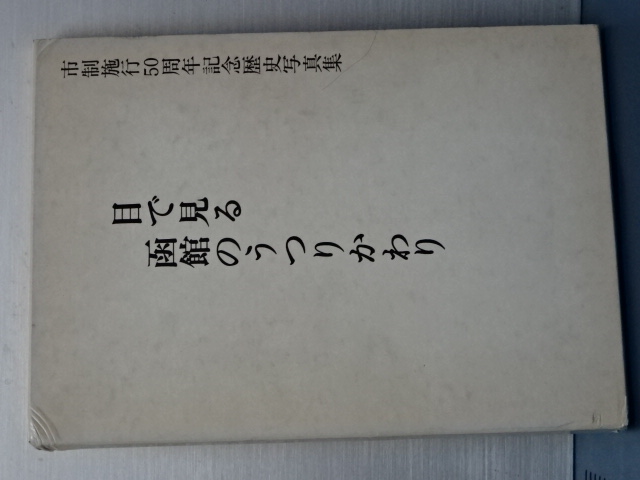 市制施行50周年記念歴史写真集
目で見る
函館のうつりかわり